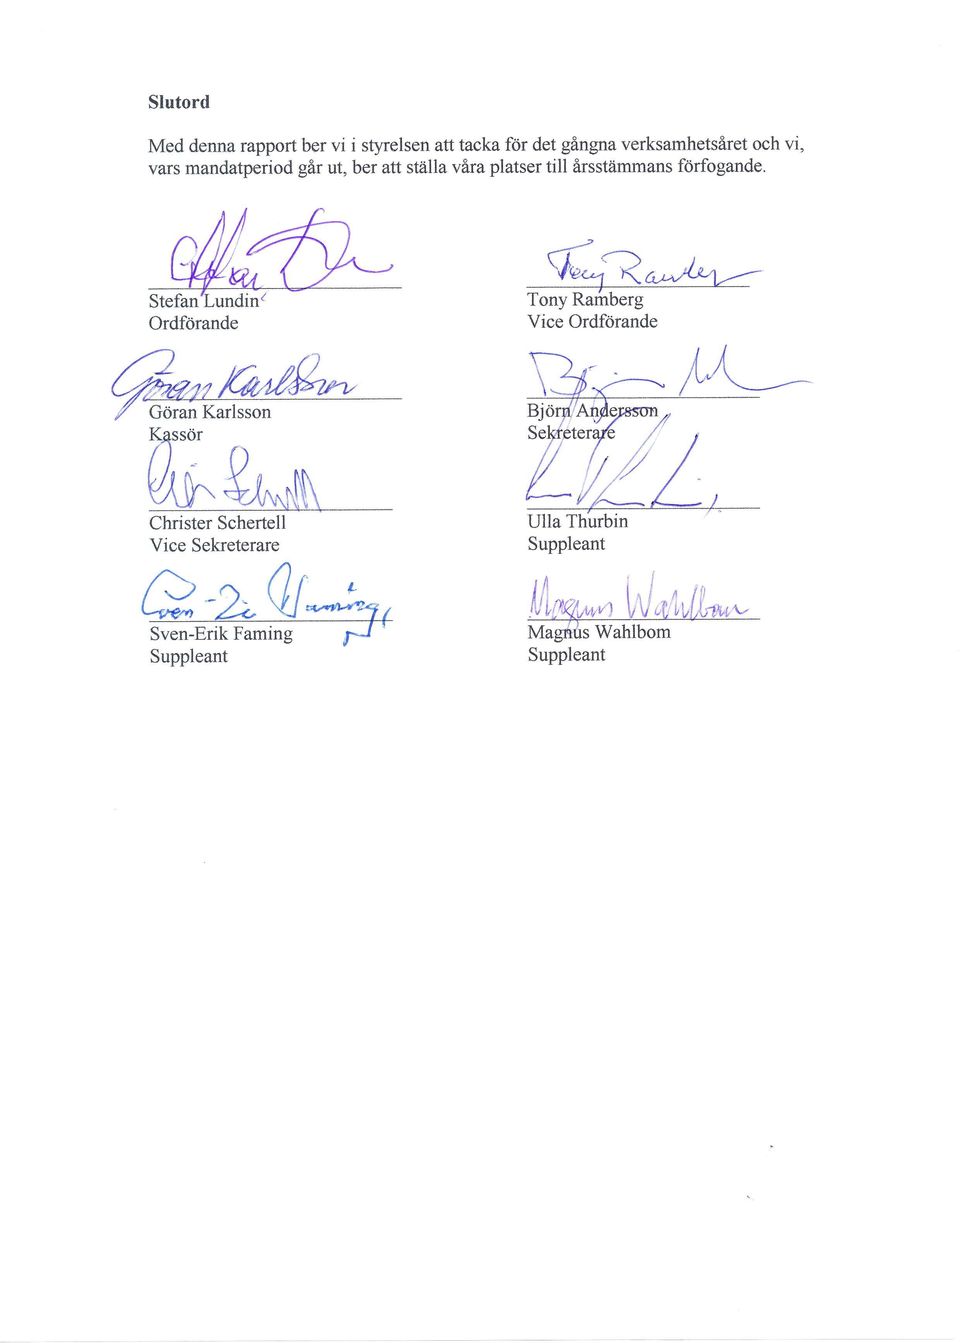 Slutord
Med denna rapport ber vi i styrelsen att tacka för det gångna verksamhetsåret och vi,
vars mandatperiod går ut, ber att ställa våra platser till årsstämmans förfogande.
Stefan Lundin
Ordförande
Tony Ramberg
Vice Ordförande
Göran Karlsson
Göran Karlsson
Kassör
Björn Andersson
Sekreterare
Christer Schertell
Vice Sekreterare
Ulla Thurbin
Suppleant
Sven-Erik Faming
Suppleant
Magnus Wahlbom
Magnus Wahlbom
Suppleant